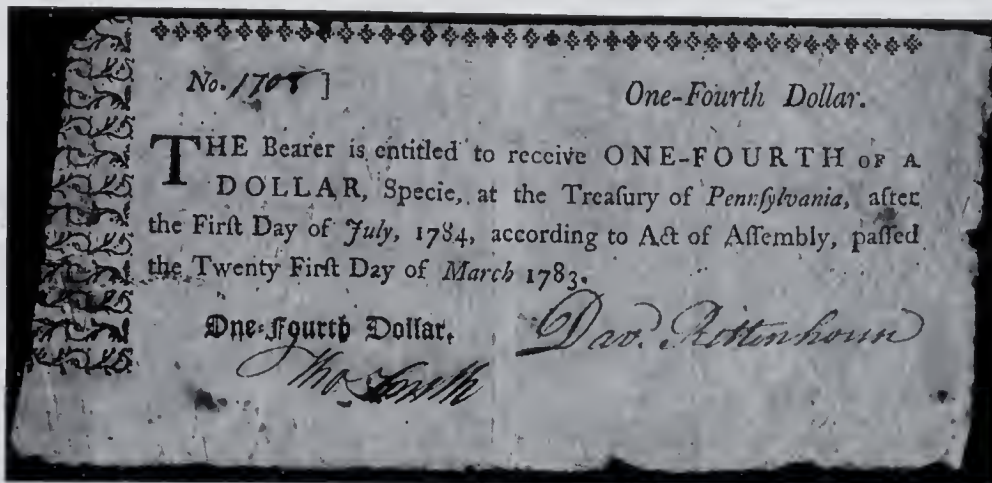 No. 1708]
One-Fourth Dollar.
THE Bearer is entitled to receive ONE-FOURTH OF A
DOLLAR, Specie, at the Treaſury of Pennſylvania, after
the Firſt Day of July, 1784, according to Act of Aſſembly, paſſed
the Twenty Firſt Day of March 1783.
One-Fourth Dollar.
Davd. Rittenhouse
Thos